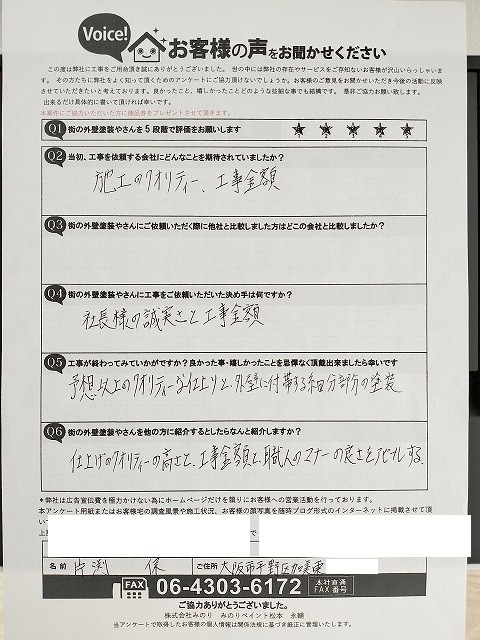 Voice!
お客様の声をお聞かせください
この度は弊社に工事をご用命頂き誠にありがとうございました。世の中には弊社の存在やサービスをご存知ないお客様が沢山いらっしゃいま
す。その方たちに弊社をよく知って頂くためのアンケートにご協力頂けないでしょうか。お客様のご意見をお聞かせいただき今後の活動に反映
させていただきたいと考えております。良かったこと、嬉しかったことどのような些細な事でも結構です。是非ご協力お願い致します。
出来るだけ具体的に書いて頂ければ幸いです。
本案件にご協力いただいた方に商品券をプレゼントさせて頂きます。
Q1 街の外壁塗装やさんを5段階で評価をお願いします ★ ★ ★ ★ ★
Q2 当初、工事を依頼する会社にどんなことを期待されていましたか?
施工のクオリティー、工事金額
Q3 街の外壁塗装やさんにご依頼いただく際に他社と比較しました方はどこの会社と比較しましたか?
Q4 街の外壁塗装やさんに工事をご依頼いただいた決め手は何ですか?
社長様の誠実さと工事金額
Q5 工事が終わってみていかがですか?良かった事・嬉しかったことを忌憚なく頂戴出来ましたら幸いです
予想以上のクオリティーな仕上りと、外壁に付帯する細分部分の塗装
Q6 街の外壁塗装やさんを他の方に紹介するとしたらなんと紹介しますか?
仕上げのクオリティーの高さと、工事金額と、職人のマナーの良さをアピールする。
*弊社は広告宣伝費を極力かけない為にホームページだけを頼りにお客様への営業活動を行っております。
本アンケート用紙またはお客様宅の調査風景や施工状況、お客様の顔写真を随時ブログ形式のインターネットに掲載させて頂
で
名前 片渕 保 ご住所 大阪市平野区加美東
FAX 06-4303-6172 本社直通 FAX番号
ご協力ありがとうございました。
株式会社みのり みのりペイント松本 永輔
当アンケートで取得したお客様の個人情報は関係法規に基づき厳正に管理いたします。